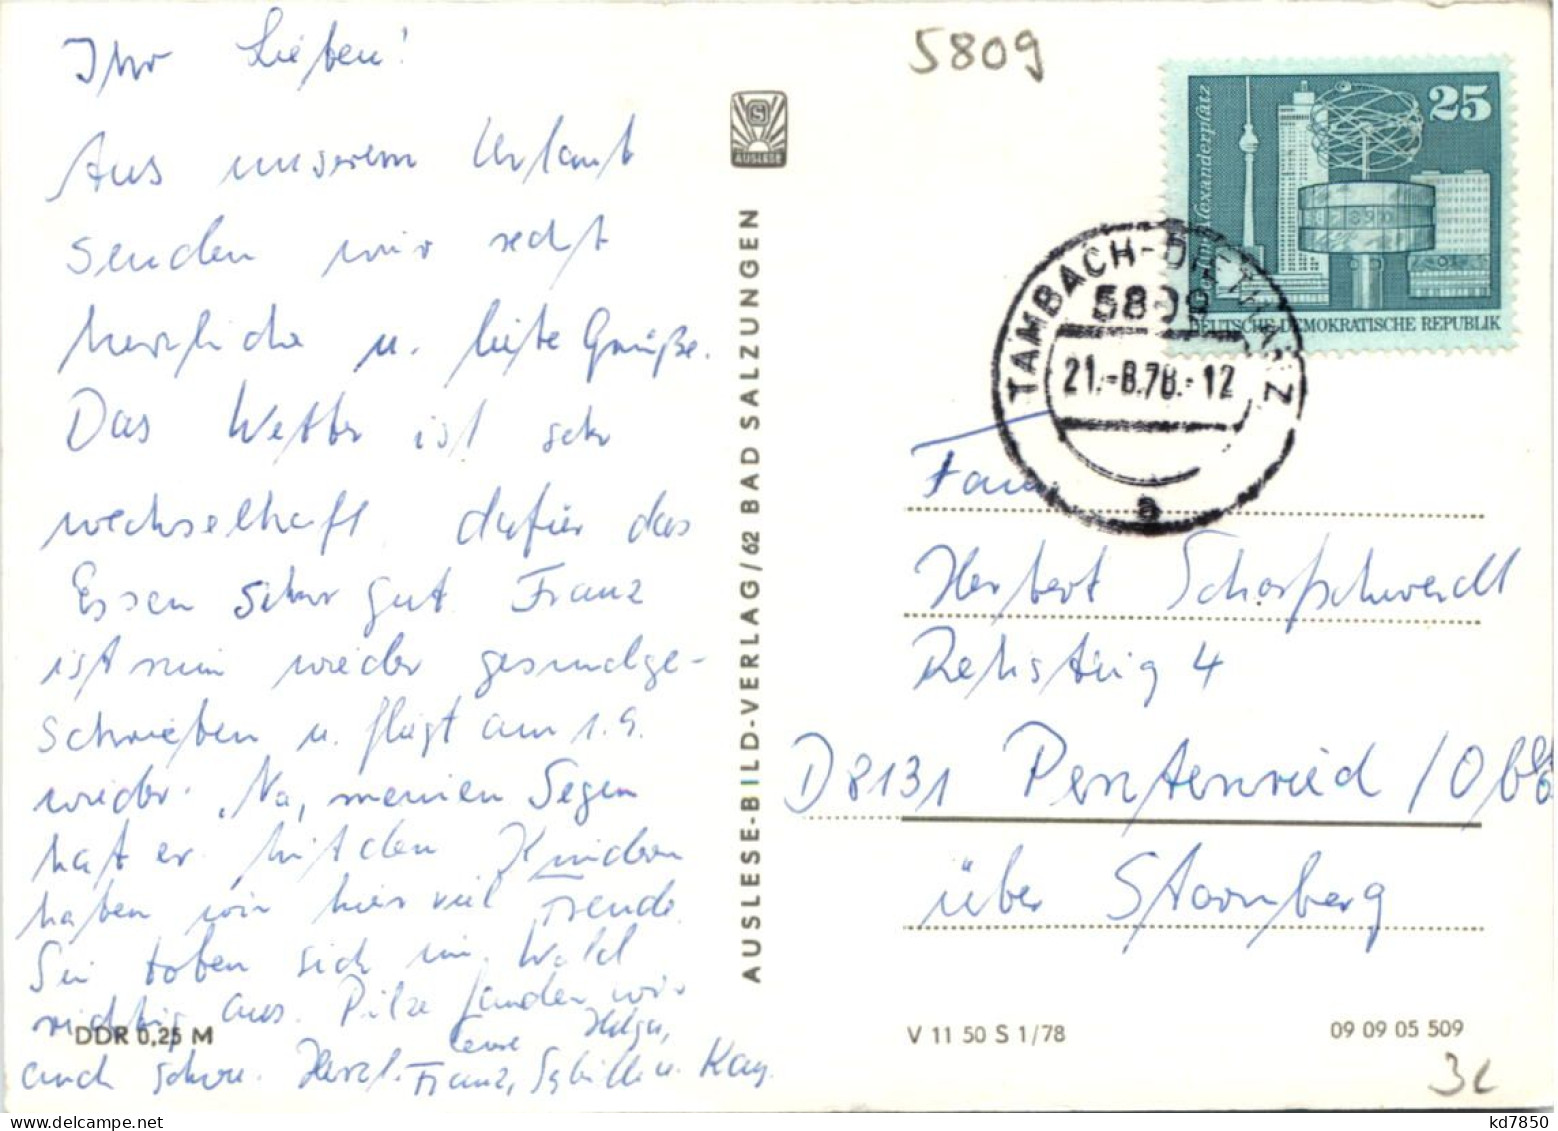 Ihr Lieben!
Aus unserem Urlaub
senden wir recht
herzliche u. liebe Grüße.
Das Wetter ist sehr
wechselhaft, dafür das
Essen sehr gut. Franz
ist nun wieder gesundge-
schrieben u. fliegt am 1.9.
wieder. Na, meinen Segen
hat er. Mit den Kindern
haben wir hier viel Freude.
Sie toben sich im Wald
richtig aus. Pilze fanden wir
auch schon. Herzl. Eure Helga,
Franz, Sybille u. Kay.
DDR 0,25 M
AUSLESE
AUSLESE-BILD-VERLAG/62 BAD SALZUNGEN
5809
Alexanderplatz
25
DEUTSCHE DEMOKRATISCHE REPUBLIK
TAMBACH-DIETHARZ
5809
21.-8.78.-12
a
Fam.
Herbert Scharfschwerdt
4
D 8131 Pentenried / Obb
über Starnberg
V 11 50 S 1/78
09 09 05 509
3L
kd7850